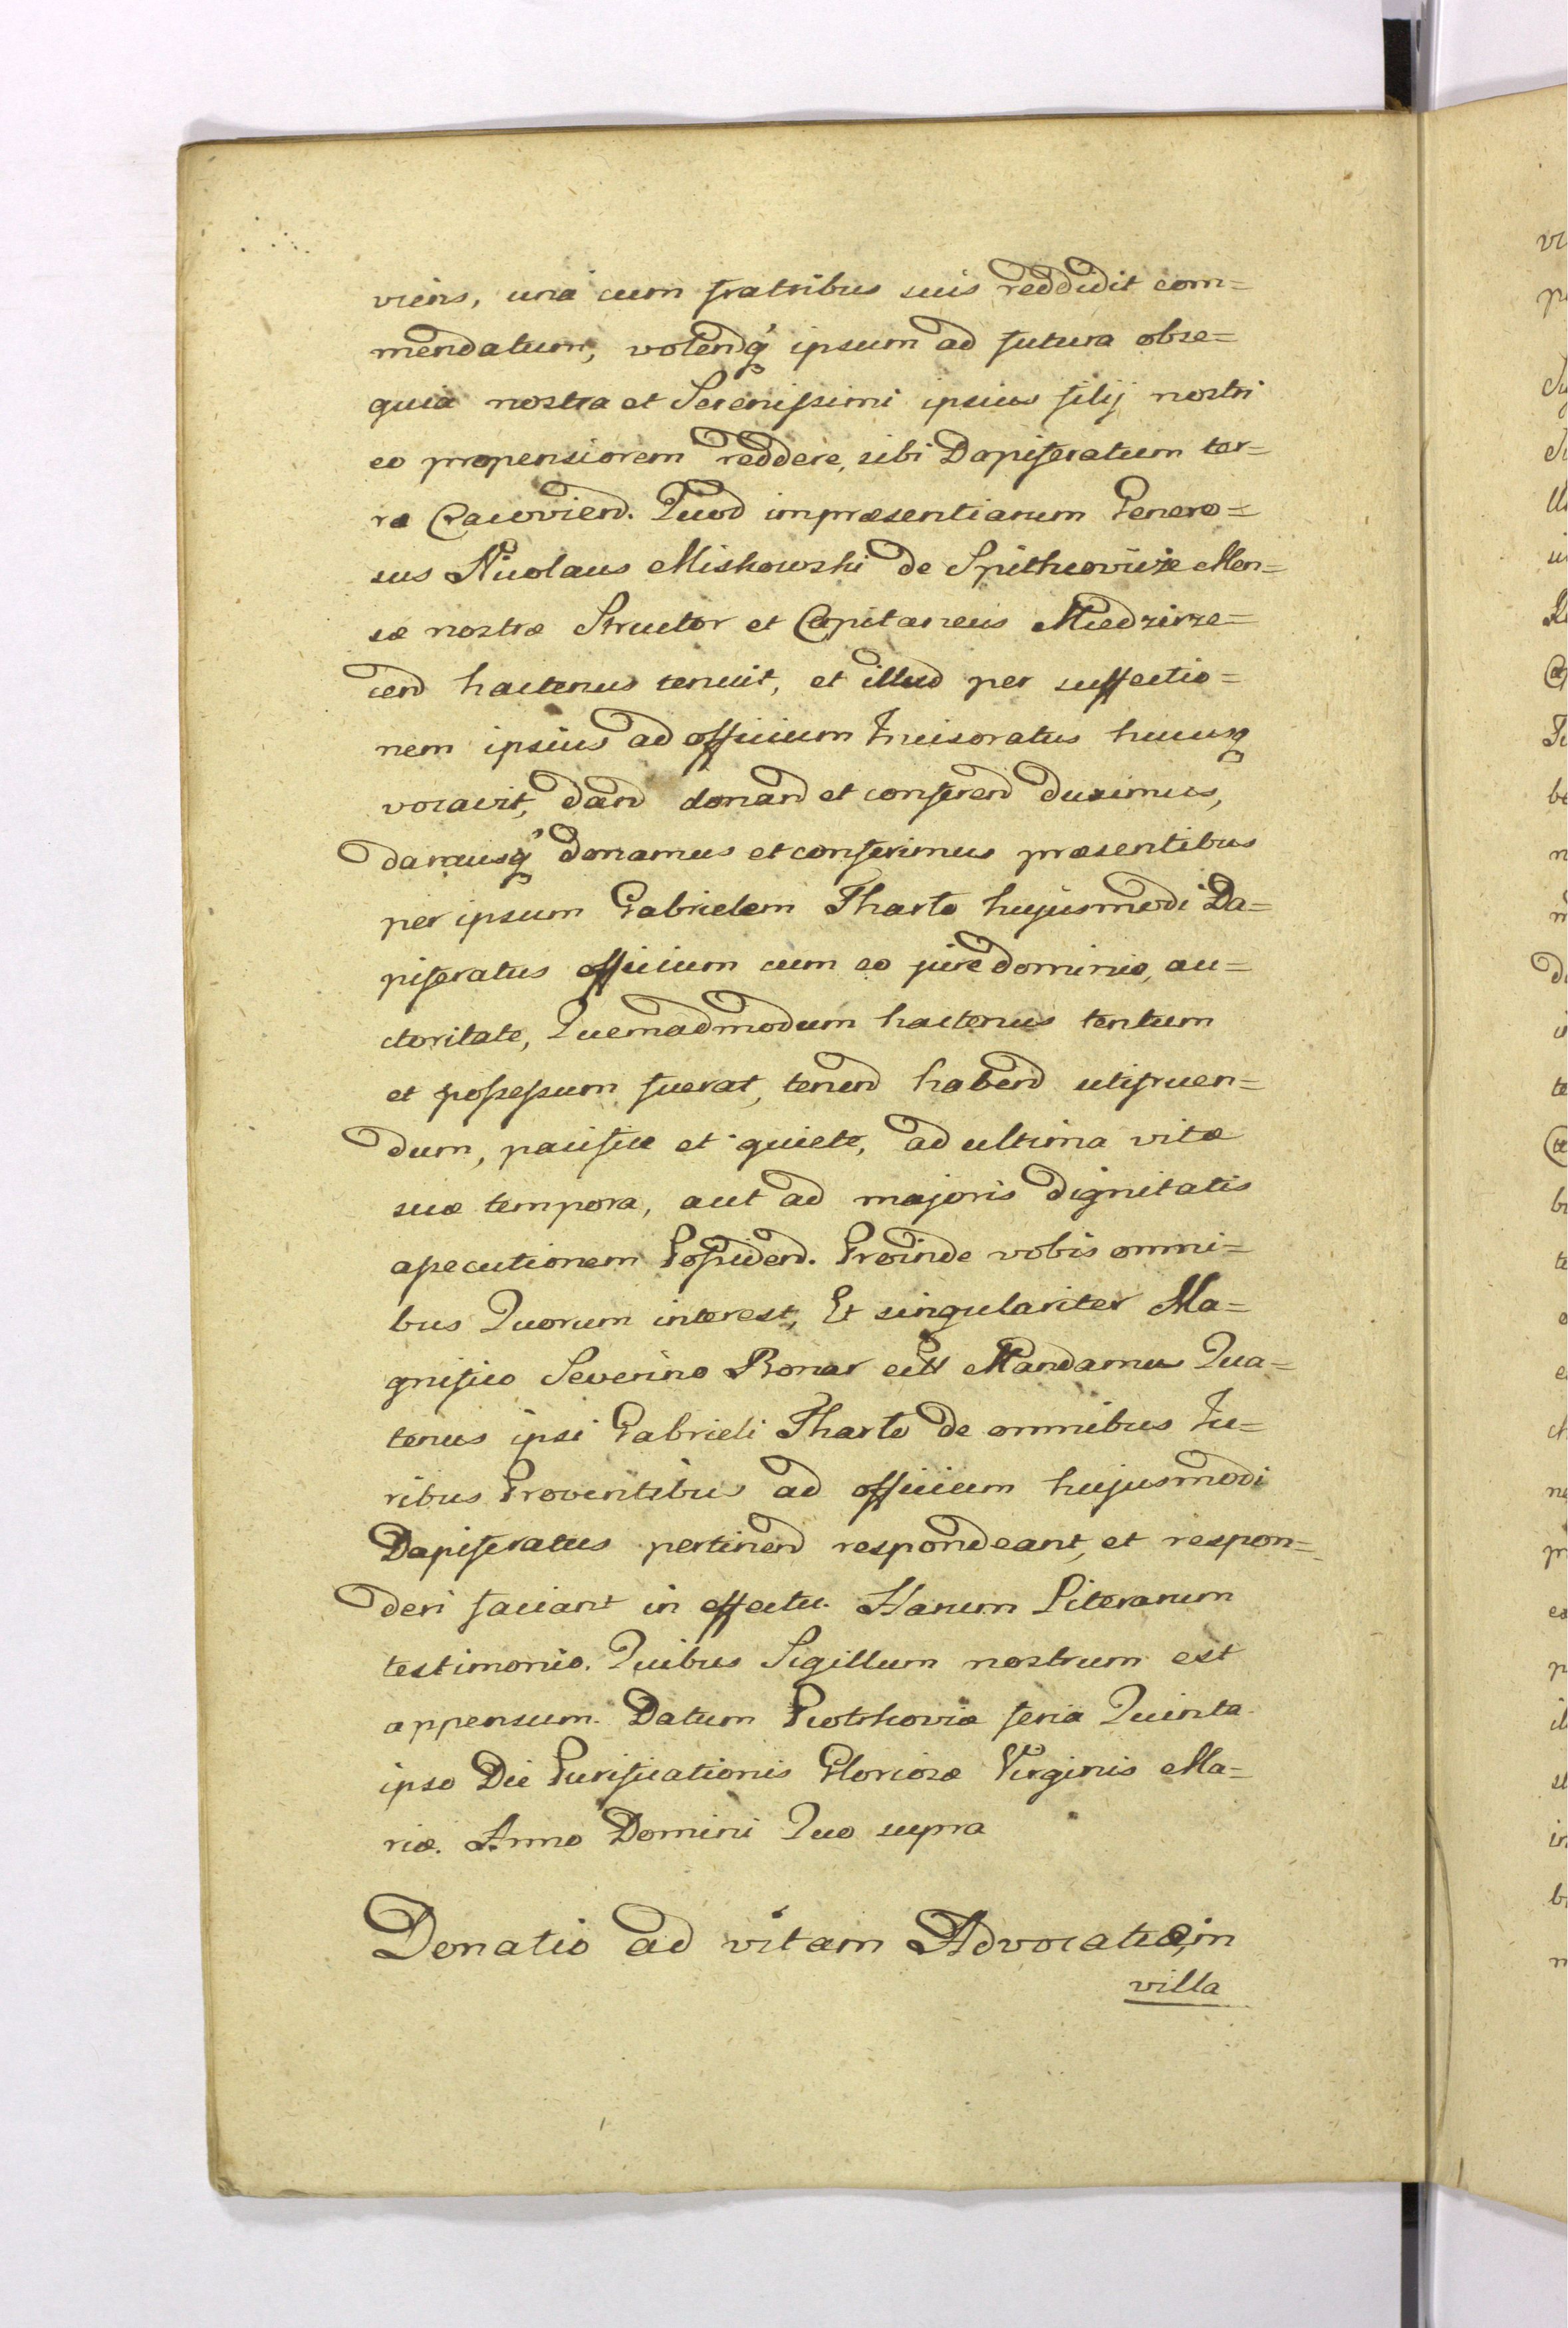 viens, una cum fratribus suis reddidit com=
mendatum, volendq́ ipsum ad futura obse=
quia nostra et Serenissimi ipsius filij nostri
eo propensiorem reddere, sibi Dapiferatum ter=
ræ Cracoviend. Quod impræsentiarum Genero=
sus Nicolaus Miskowski de Spithcovicze Men=
sæ nostræ Structor et Capitaneus Miedzirze=
cend hactenus tenuit, et illud per suffectio=
nem ipsius ad officium Incisoratus hucusq
vocavit, dand donand et conferend duximus,
damusq́ donamus et conferimus præsentibus
per ipsum Gabrielem Tharlo hujusmodi Da=
piferatus officium cum eo jure dominio, au=
ctoritate, Quemadmodum hactenus tentum
et possessum fuerat, tenend habend utifruen=
dum, pacifice et quiete, ad ultima vitæ
suæ tempora, aut ad majoris dignitatis
assecutionem Possidend. Proinde vobis omni=
bus Quorum interest, Et singulariter Ma=
gnifico Severino Bonar Mandamus Qua=
tenus ipsi Gabrieli Tharlo de omnibus Ju=
ribus Proventibus ad officium hujusmodi
Dapiferatus pertinend respondeant, et respon=
deri faciant in effectu. Harum Literarum
testimonio. Quibus Sigillum nostrum est
appensum. Datum Piotrkoviæ feria Quinta
ipso Die Purificationis Gloriosæ Virginis Ma=
riæ. Anno Domini Quo supra
Donatio ad vitam Advocatiæ, in
villa